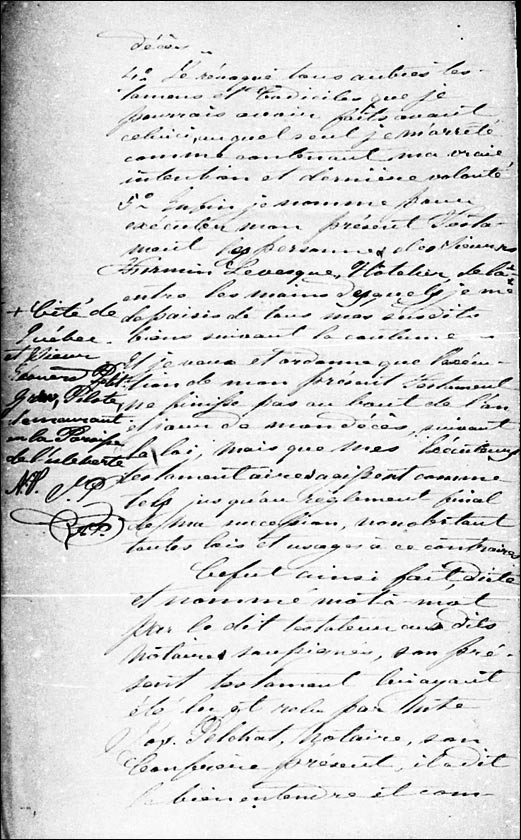 décès.
4o. Je révoque tous autres tes-
tamens et Codiciles que je
pourrais avoir faits avant
celuici, auquel seul je m'arrête
comme contenant ma vraie
intention et dernière volonté
5o. Enfin je nomme pour
exécuter mon présent Testa-
ment les personnes des Sieurs
Firmin Levesque, Hôtelier de la +
entre les mains desquels je me
dessaisis de tous mes susdits
biens suivant la coutume
Et je veux et ordonne que l'exécu-
tion de mon présent Testament
ne finisse pas au bout de l'an
et jour de mon décès, suivant
la loi, mais que mes Exécuteurs
testamentaires agissent comme
tels jusqu'au règlement final
de ma succession nonobstant
toutes lois et usages à ce contraires
+ Cité de
Québec
et Sieur
Pilote,
demeurant
en la Paroisse
de l'islet
N.P. J.P.
Ce fut ainsi fait, dicté
et nommé mot à mot
par le dit testateur aux dits
Notaires soussignés, son pré-
sent testament lui ayant
été lu et relu par Mtre
Pelchat, Notaire, son
Confrère présent, il a dit
le bien entendre et com-